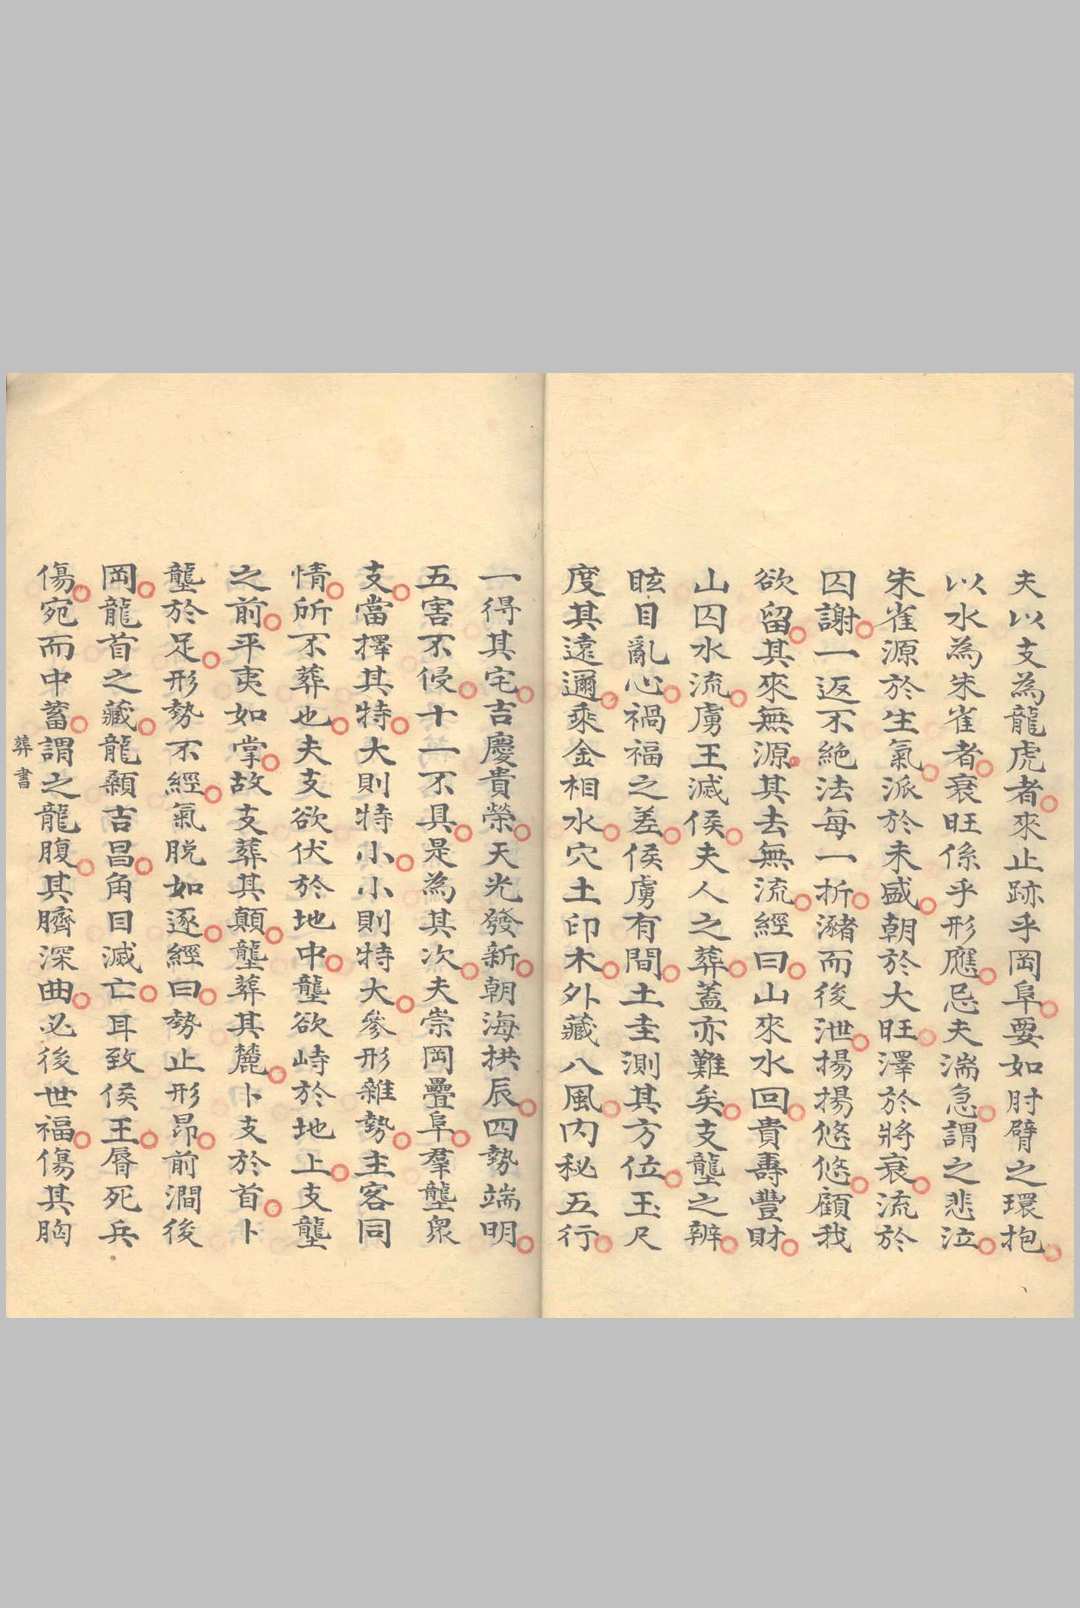 夫以支為龍虎者來止跡乎岡阜要如肘臂之環抱
以水為朱雀者衰旺係乎形應忌夫湍急謂之悲泣
朱雀源於生氣派於未盛朝於大旺澤於將衰流於
囚謝一返不絕法每一折瀦而後泄揚揚悠悠顧我
欲留其來無源其去無流經曰山來水回貴壽豐財
山囚水流虜王滅侯夫人之葬蓋亦難矣支壟之辨
眩目亂心禍福之差侯虜有間土圭測其方位玉尺
度其遠邇乘金相水穴土印木外藏八風內秘五行
一得其宅吉慶貴榮天光發新朝海拱辰四勢端明
五害不侵十一不具是為其次夫崇岡疊阜羣壟眾
支當擇其特大則特小小則特大參形雜勢主客同
情所不葬也夫支欲伏於地中壟欲峙於地上支壟
之前平夷如掌故支葬其顛壟葬其麓卜支於首卜
壟於足形勢不經氣脫如逐經曰勢止形昂前澗後
岡龍首之藏龍顙吉昌角目滅亡耳致侯王脣死兵
傷宛而中蓄謂之龍腹其臍深曲必後世福傷其胸
葬書